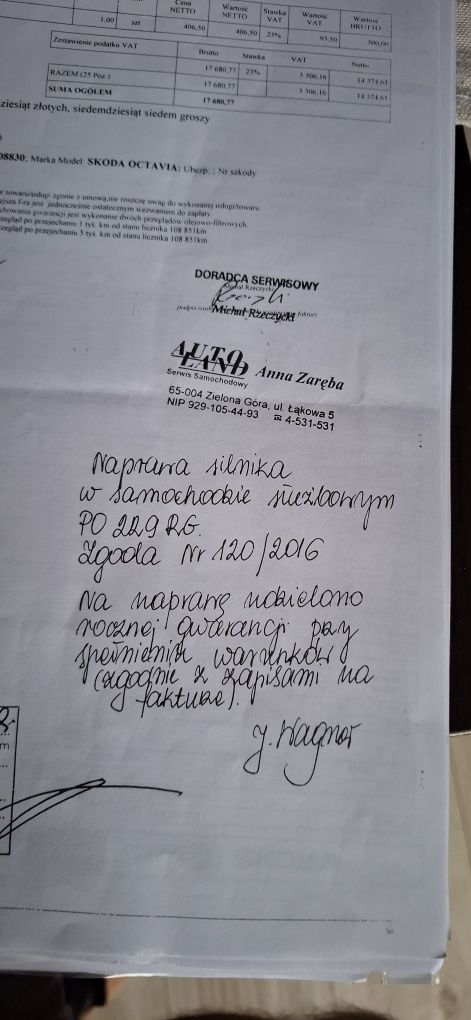 Cena Wartość Stawka Wartość Wartość
NETTO NETTO VAT VAT BRUTTO
1,00 szt 406,50 406,50 23% 93,50 500,00
Zestawienie podatku VAT
Brutto Stawka VAT Netto
RAZEM (25 Poz.) 17 680,77 23% 3 306,16 14 374,61
17 680,77 3 306,16 14 374,61
SUMA OGÓŁEM 17 680,77
ziesiąt złotych, siedemdziesiąt siedem groszy
08830; Marka Model: SKODA OCTAVIA; Ubezp. ; Nr szkody:
towaru/usługi zgonie z umową,nie roszczę uwag do wykonanej usługi/towaru
jest jednocześnie ostatecznym wezwaniem do zapłaty
gwarancji jest wykonanie dwoch przegladów olejowo-filtrowych
zegląd po przejechaniu 1 tyś. km od stanu licznika 108 851km
zegląd po przejechaniu 5 tyś. km od stanu licznika 108 851km
DORADCA SERWISOWY
Michał Rzeczycki
Michał Rzeczycki
AUTO
LAND Anna Zaręba
Serwis Samochodowy
65-004 Zielona Góra, ul. Łąkowa 5
NIP 929-105-44-93 ☎ 4-531-531
Naprawa silnika
w samochodzie służbowym
PO 229 RG.
Zgoda Nr 120/2016
Na naprawę udzielono
rocznej gwarancji przy
spełnieniu warunków
(zgodnie z zapisami na
fakturze).
J. Wagner
m
w